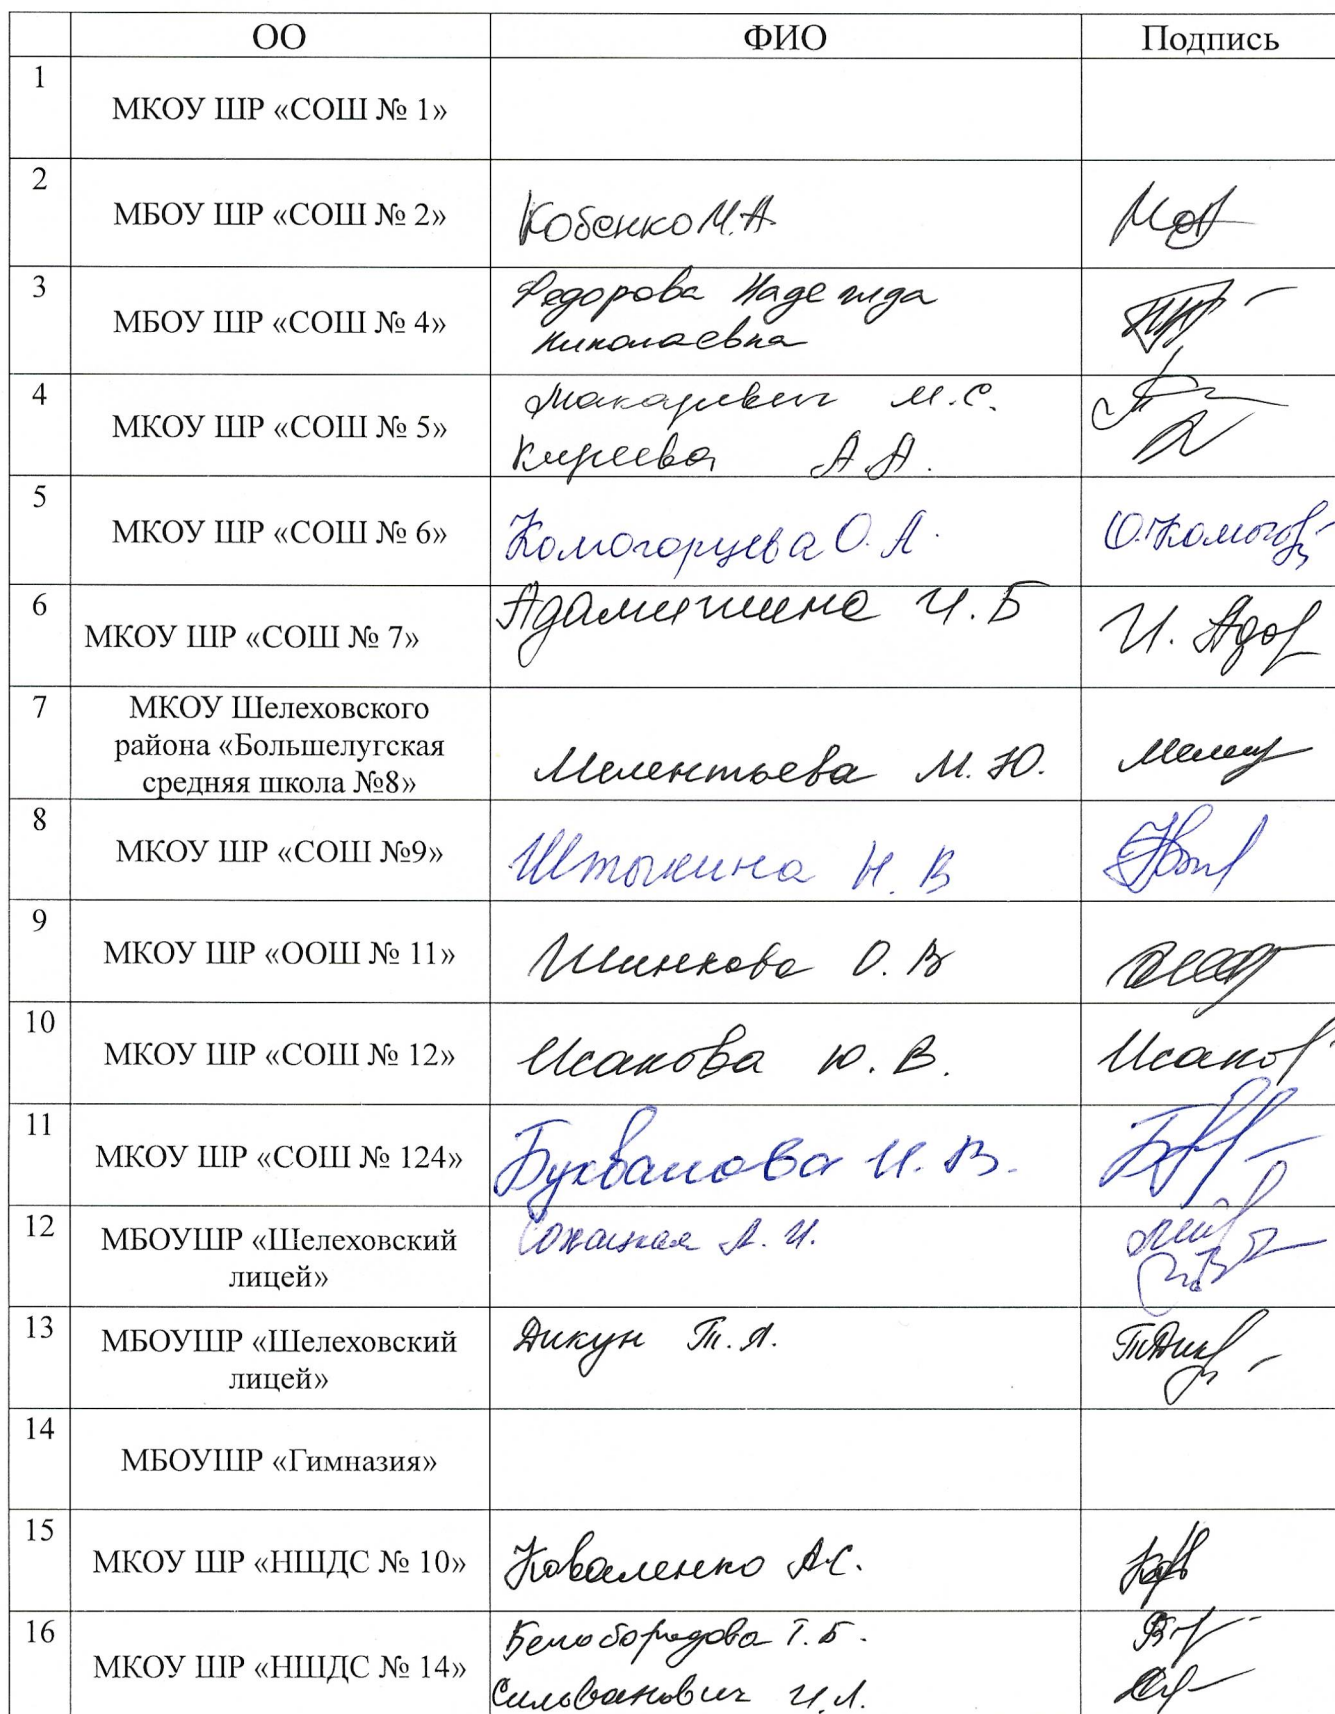 ОО ФИО Подпись
1
МКОУ ШР «СОШ № 1»
2
МБОУ ШР «СОШ № 2» Кобенко М.А.
3
МБОУ ШР «СОШ № 4» Федорова Надежда
Николаевна
4
МКОУ ШР «СОШ № 5» Макаревич М.С.
Киреева А.А.
5
МКОУ ШР «СОШ № 6» Комогорцева О.А.
6
МКОУ ШР «СОШ № 7» И.Б
7
МКОУ Шелеховского
района «Большелугская
средняя школа №8» Мелентьева М.Ю.
8
МКОУ ШР «СОШ №9» Штыкина Н.В
9
МКОУ ШР «ООШ № 11» Шинкова О.В
10
МКОУ ШР «СОШ № 12» Исакова Ю.В. Исаков
11
МКОУ ШР «СОШ № 124» И.В.
12
МБОУШР «Шелеховский
лицей» А.И.
13
МБОУШР «Шелеховский
лицей» Дикун Т.А.
14
МБОУШР «Гимназия»
15
МКОУ ШР «НШДС № 10» Коваленко А.С.
16
МКОУ ШР «НШДС № 14» Белобородова Т.Б.
Сильванович И.Л.